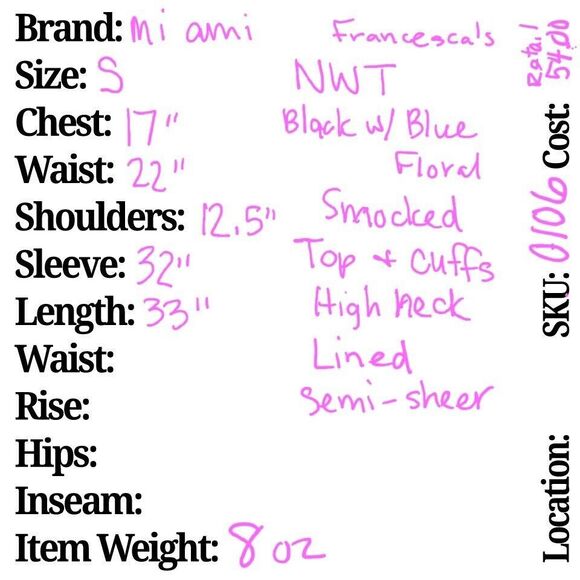 Brand: Mi ami
Size: S
Chest: 17"
Waist: 22"
Shoulders: 12.5"
Sleeve: 32"
Length: 33"
Waist:
Rise:
Hips:
Inseam:
Item Weight: 8 oz
Francesca's
NWT
Black w/ Blue
Floral
Smocked
Top + Cuffs
High neck
Lined
Semi-sheer
Location:
SKU: 0106
Cost:
Retail
54.00